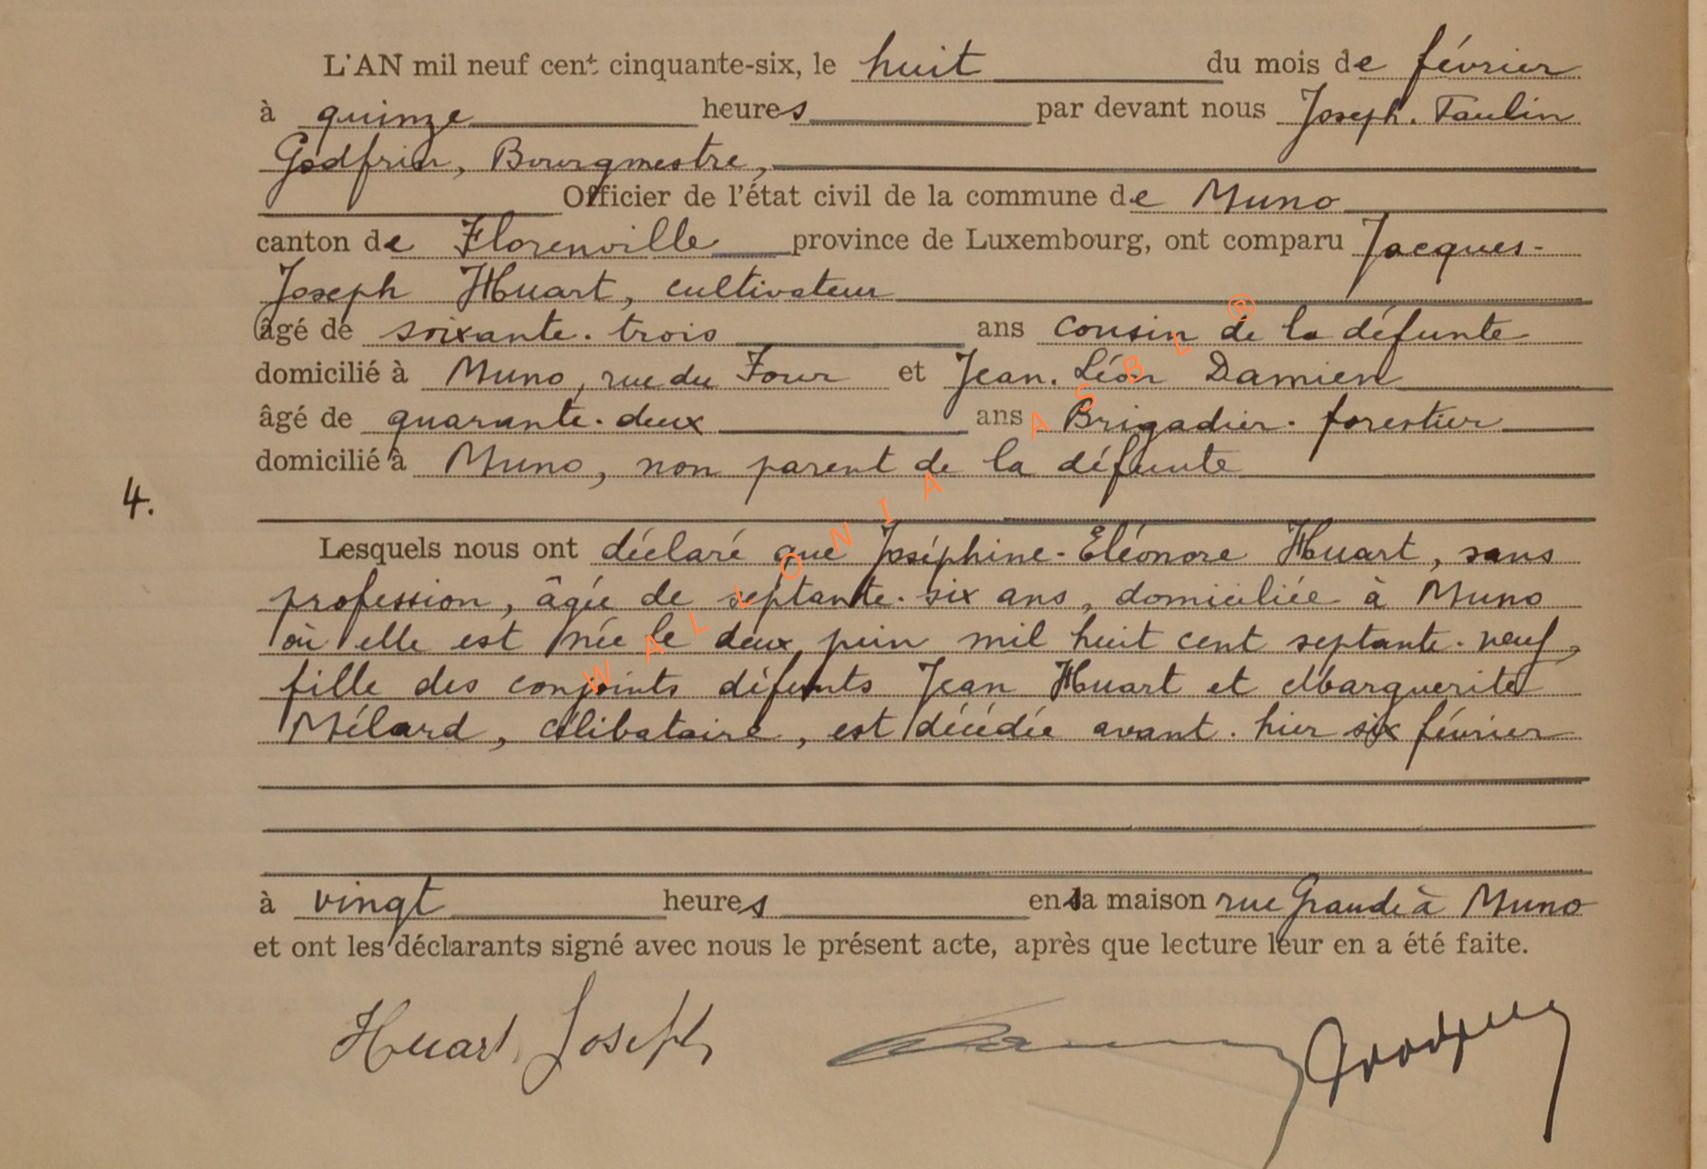 L'AN mil neuf cent cinquante-six, le huit du mois de février
à quinze heures par devant nous Joseph-Paulin
Godfrin, Bourgmestre,
Officier de l'état civil de la commune de Muno
canton de Florenville province de Luxembourg, ont comparu Jacques-
Joseph Huart, cultivateur
âgé de soixante-trois ans cousin de la défunte
domicilié à Muno, rue du Four et Jean-Léon Damien
âgé de quarante-deux ans Brigadier-forestier
domicilié à Muno, non parent de la défunte
4.
Lesquels nous ont déclaré que Joséphine-Eléonore Huart, sans
profession, âgée de septante-six ans, domiciliée à Muno
où elle est née le deux juin mil huit cent septante-neuf,
fille des conjoints défunts Jean Huart et Marguerite
Mélard, célibataire, est décédée avant-hier six février
à vingt heures en sa maison rue Grande à Muno
et ont les déclarants signé avec nous le présent acte, après que lecture leur en a été faite.
Huart Joseph
WALLONIA ASBL ®